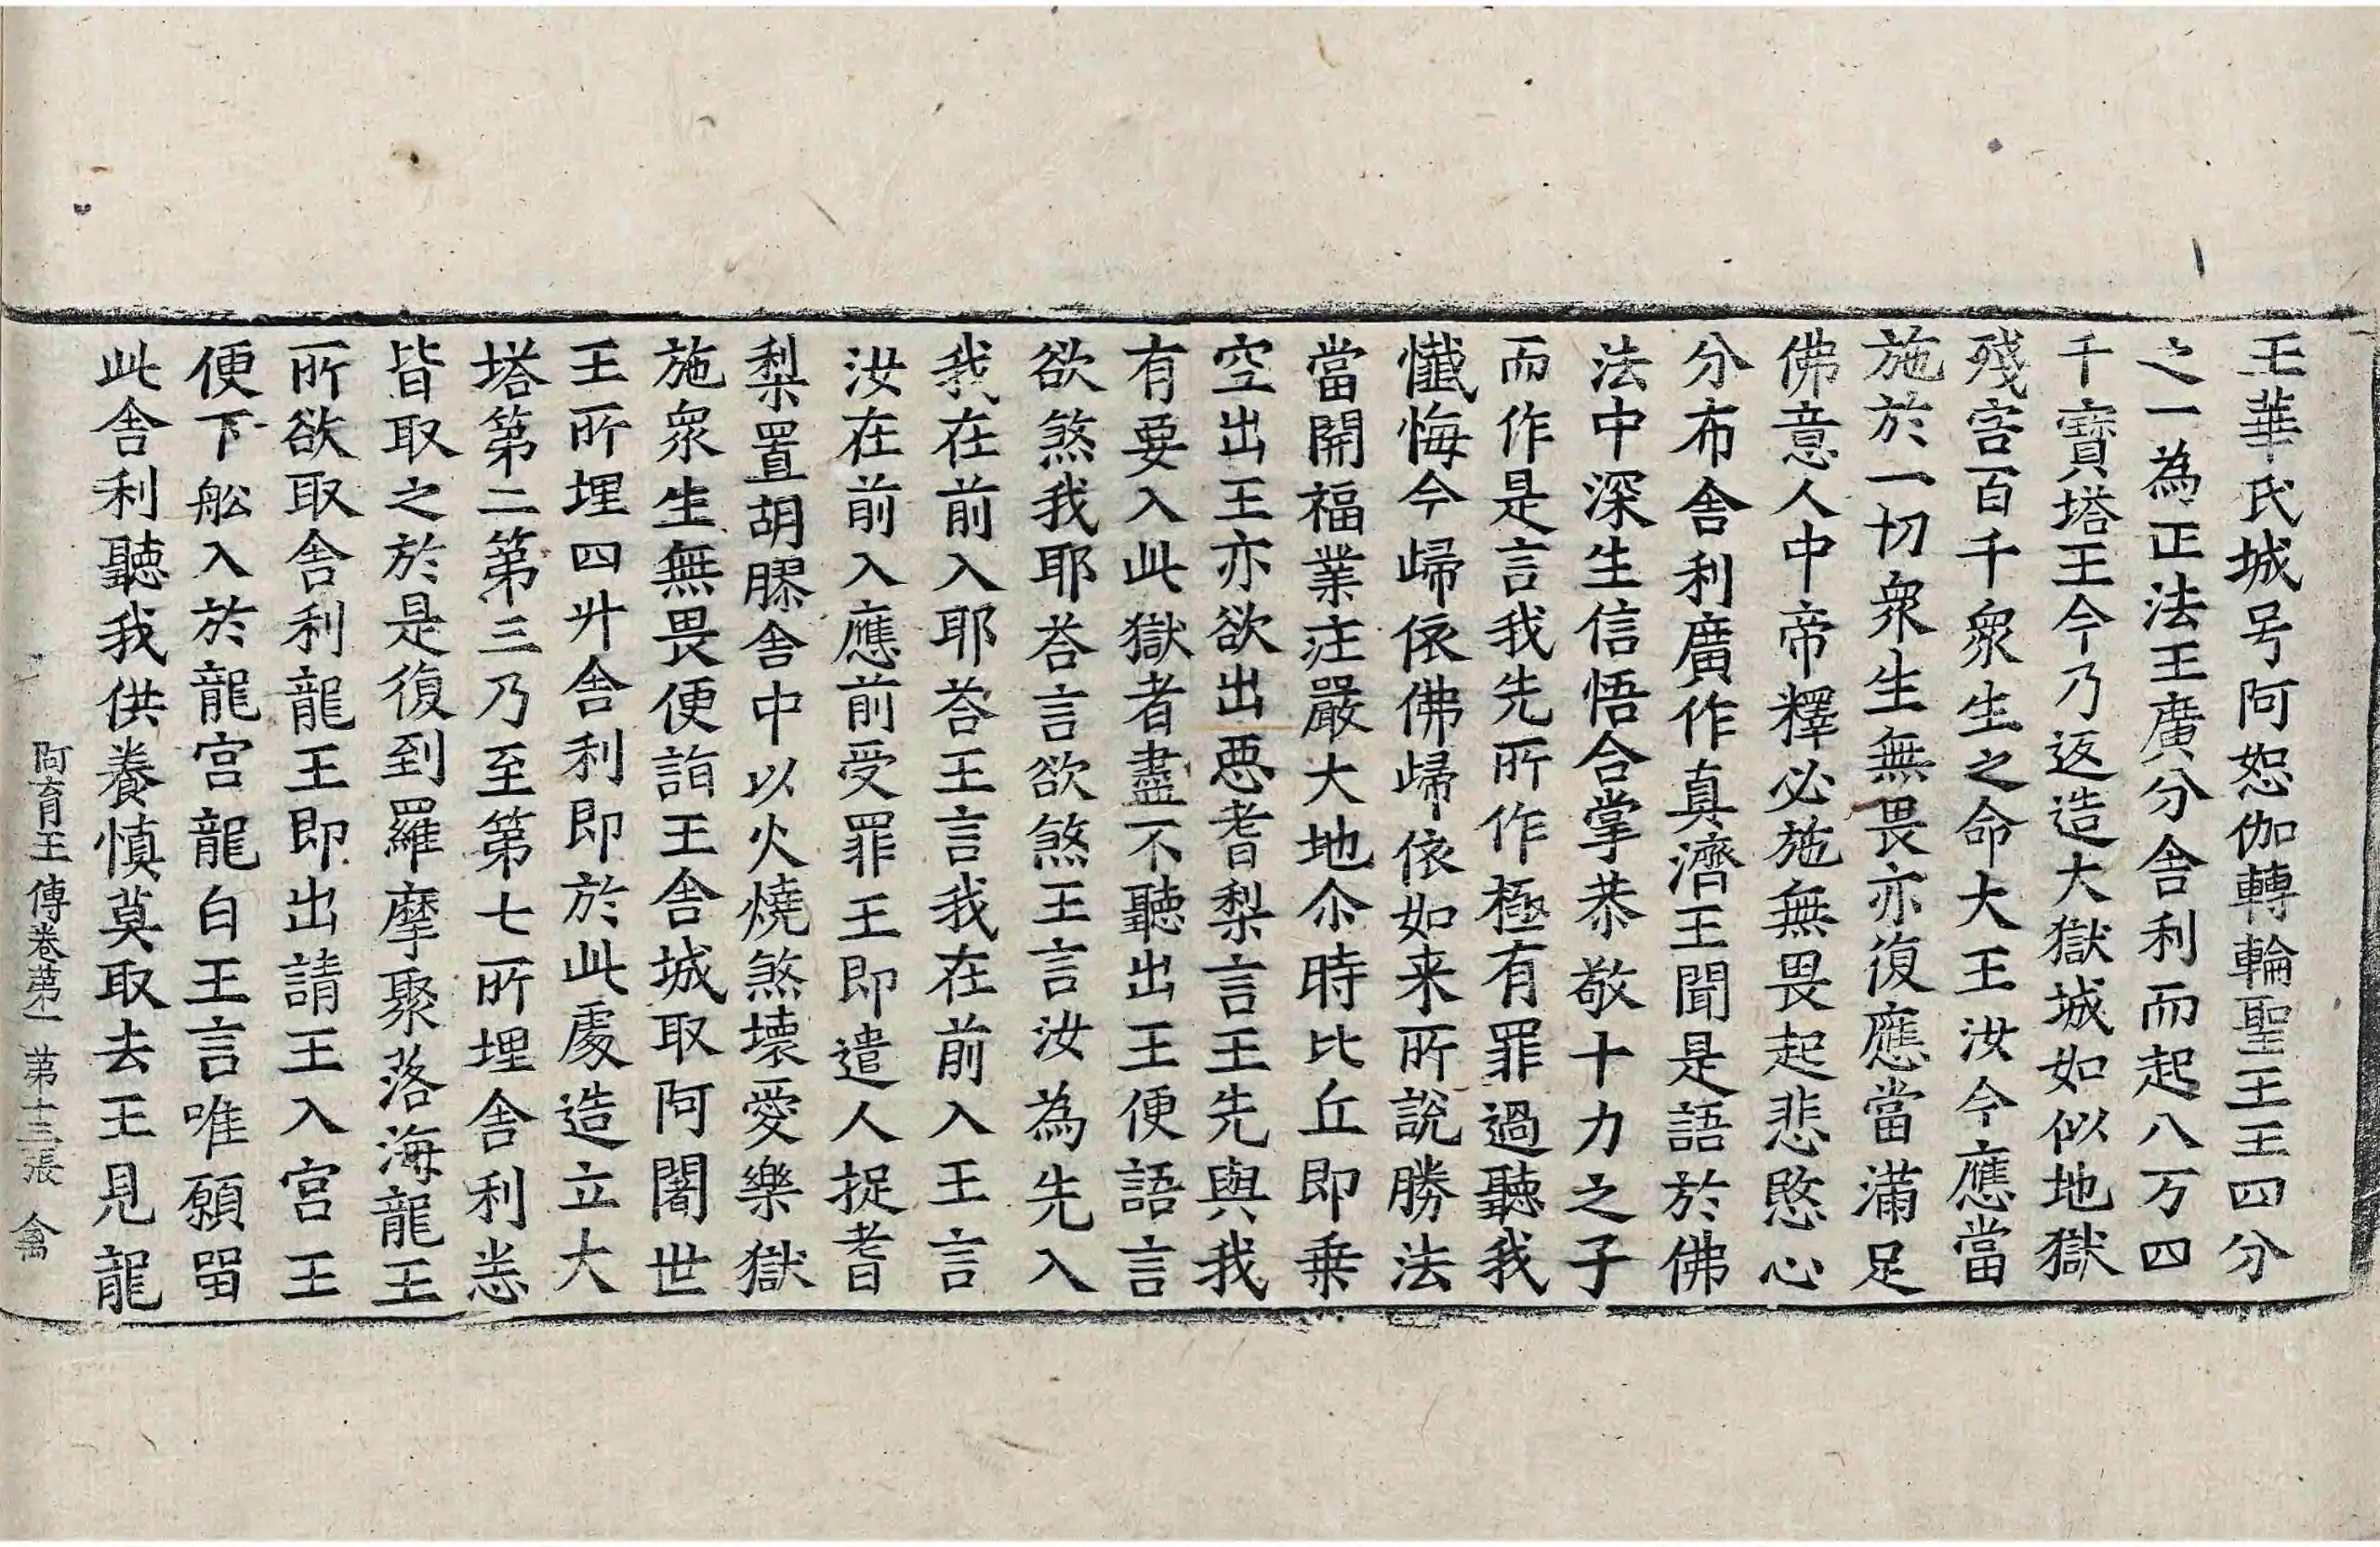 王華氏城号阿恕伽轉輪聖王王四分
之一為正法王廣分舍利而起八万四
千寳塔王今乃返造大獄城如似地獄
殘害百千衆生之命大王汝今應當
施於一切衆生無畏亦復應當滿足
佛意人中帝釋必施無畏起悲愍心
分布舍利廣作真濟王聞是語於佛
法中深生信悟合掌恭敬十力之子
而作是言我先所作極有罪過聽我
懺悔今歸依佛歸依如来所説勝法
當開福業庄嚴大地尒時比丘即乗
空出王亦欲出惡耆梨言王先與我
有要入此獄者盡不聽出王便語言
欲煞我耶荅言欲煞王言汝為先入
我在前入耶荅王言我在前入王言
汝在前入應前受罪王即遣人捉耆
梨置胡膠舍中以火燒煞壞愛樂獄
施衆生無畏便詣王舍城取阿闍世
王所埋四升舍利即於此處造立大
塔第二第三乃至第七所埋舍利恙
皆取之於是復到羅摩聚落海龍王
所欲取舍利龍王即出請王入宫王
便下舩入於龍宫龍白王言唯願留
此舍利聽我供養慎莫取去王見龍
阿育王傳卷第一 第十三張 禽